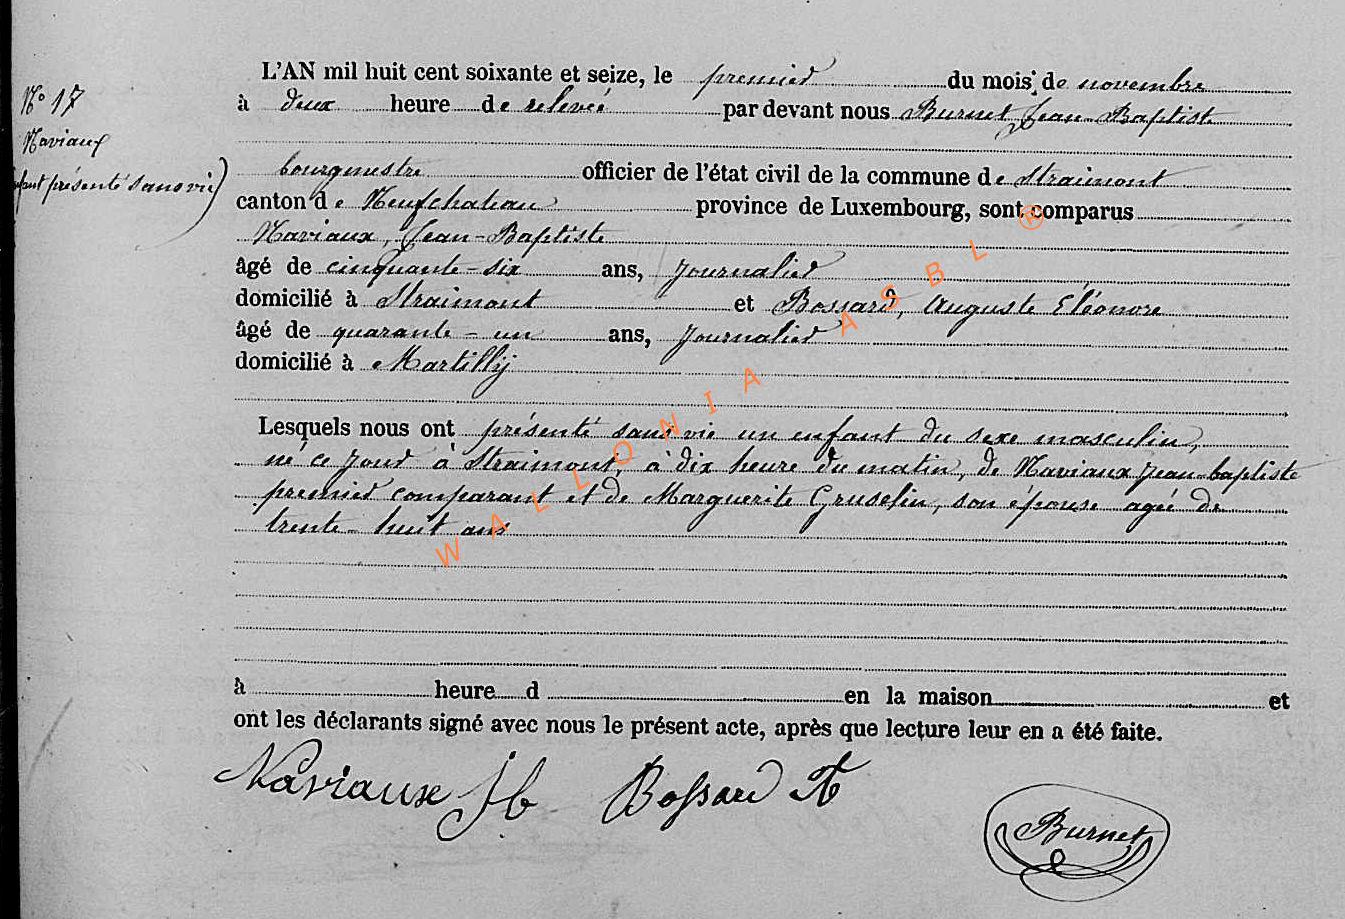 L'AN mil huit cent soixante et seize, le premier du mois de novembre
N° 17
à deux heure de relevée par devant nous Burnet Jean-Baptiste
Naviaux
bourgmestre officier de l'état civil de la commune de Straimont
enfant présenté sans vie)
canton de Neufchateau province de Luxembourg, sont comparus
Naviaux, Jean-Baptiste
âgé de cinquante-six ans, journalier
domicilié à Straimont et Bossard, Auguste Eléonore
âgé de quarante-un ans, journalier
domicilié à Martilly
Lesquels nous ont présenté sans vie un enfant du sexe masculin,
né ce jour à Straimont à dix heure du matin, de Naviaux Jean-baptiste
premier comparant et de Marguerite Gruselin, son épouse agée de
trente-huit ans
à heure d en la maison et
ont les déclarants signé avec nous le présent acte, après que lecture leur en a été faite.
Naviaux Jb Bossard A
Burnet
WALLONIA ASBL ®